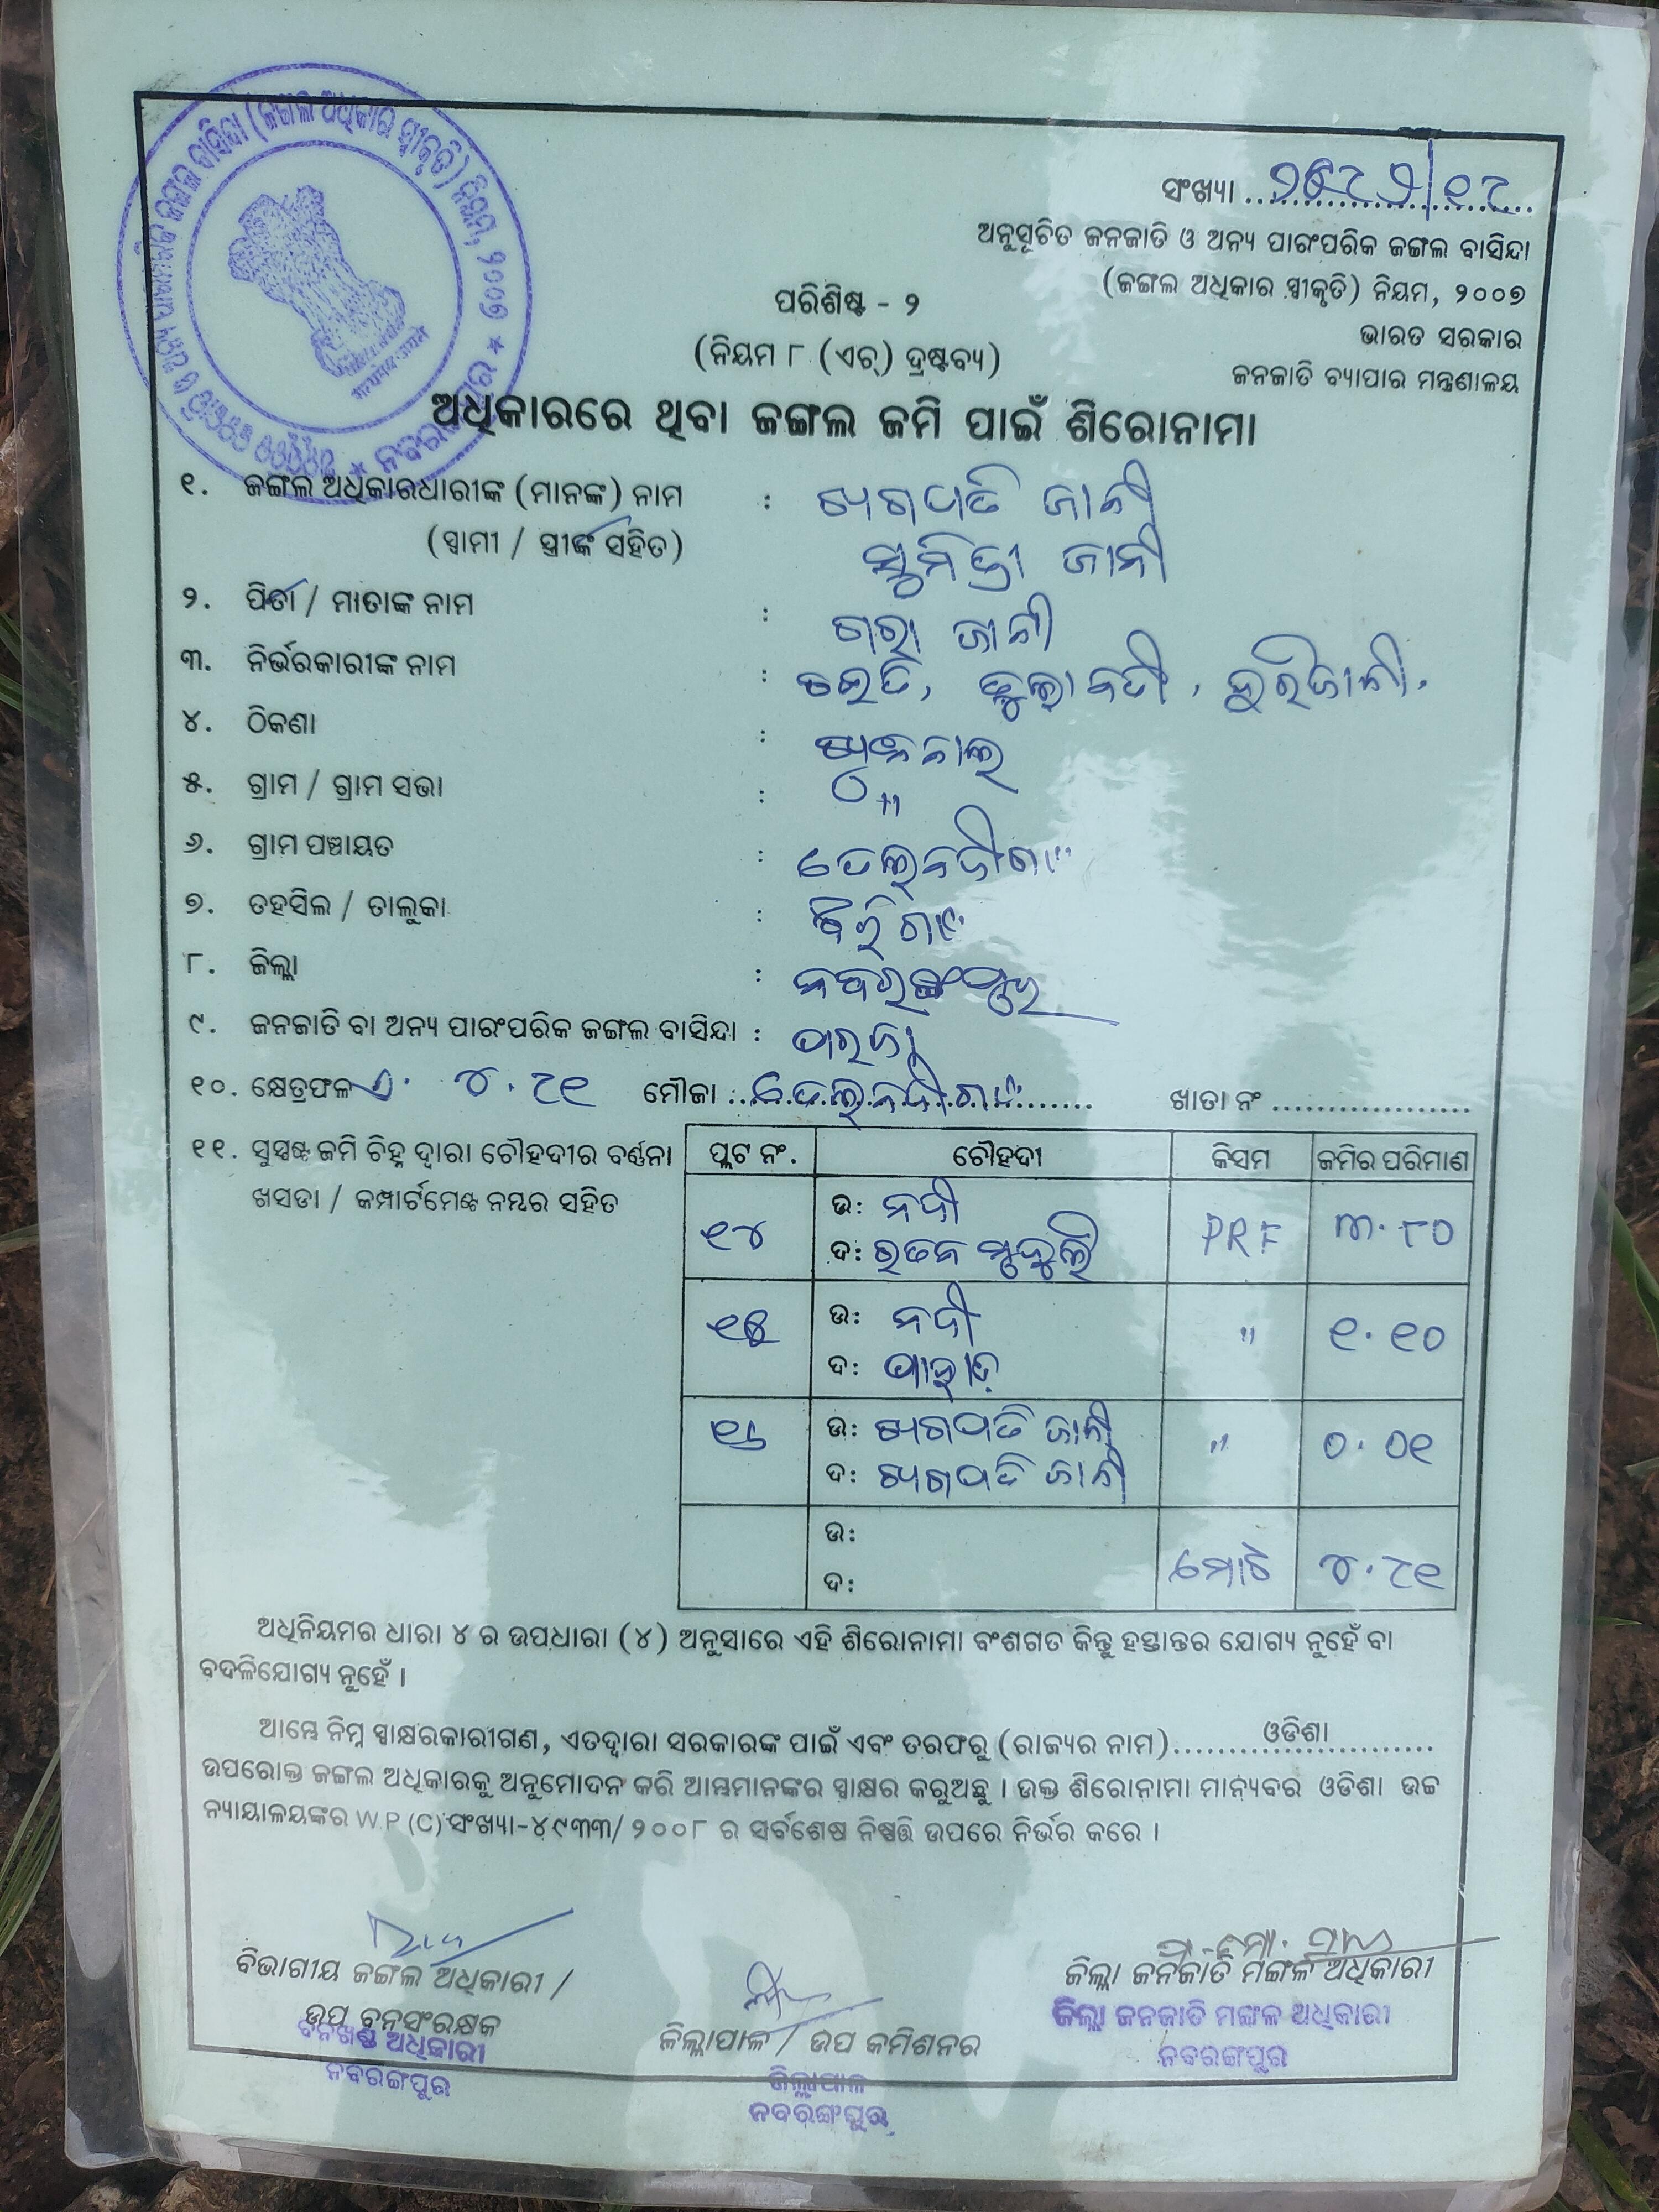 ସଂଖ୍ୟା
ଅନୁସୂଚିତ ଜନଜାତି ଓ ଅନ୍ୟ ପାରଂପରିକ ଜଙ୍ଗଲ ବାସିନ୍ଦା
(ଜଙ୍ଗଲ ଅଧିକାର ସ୍ୱୀକୃତି) ନିୟମ, ୨୦୦୭
ଭାରତ ସରକାର
ଜନଜାତି ବ୍ୟାପାର ମନ୍ତ୍ରଣାଳୟ
ପରିଶିଷ୍ଟ - ୨
(ନିୟମ ୮ (ଏଚ୍) ଦ୍ରଷ୍ଟବ୍ୟ)
ଅଧିକାରରେ ଥିବା ଜଙ୍ଗଲ ଜମି ପାଇଁ ଶିରୋନାମା
୧. ଜଙ୍ଗଲ ଅଧିକାରଧାରୀଙ୍କ (ମାନଙ୍କ) ନାମ : ଖଗପତି ଜାନୀ
(ସ୍ୱାମୀ / ସ୍ତ୍ରୀଙ୍କ ସହିତ) ସୁମିତ୍ରା ଜାନୀ
୨. ପିତା / ମାତାଙ୍କ ନାମ : ଗରା ଜାନୀ
୩. ନିର୍ଭରକାରୀଙ୍କ ନାମ :
୪. ଠିକଣା :
୫. ଗ୍ରାମ / ଗ୍ରାମ ସଭା : "
୬. ଗ୍ରାମ ପଞ୍ଚାୟତ :
୭. ତହସିଲ / ତାଲୁକା :
୮. ଜିଲ୍ଲା : ନବରଙ୍ଗପୁର
୯. ଜନଜାତି ବା ଅନ୍ୟ ପାରଂପରିକ ଜଙ୍ଗଲ ବାସିନ୍ଦା : ପରଜା
୧୦. କ୍ଷେତ୍ରଫଳ ୪.୯୧ ମୌଜା ଖାତା ନଂ
୧୧. ସୁସ୍ପଷ୍ଟ ଜମି ଚିହ୍ନ ଦ୍ୱାରା ଚୌହଦୀର ବର୍ଣ୍ଣନା
ଖସଡା / କମ୍ପାର୍ଟମେଣ୍ଟ ନମ୍ବର ସହିତ
ପ୍ଲଟ ନଂ. ଚୌହଦୀ କିସମ ଜମିର ପରିମାଣ
୧୪ ଉ: ନଦୀ PRF ୩.୮୦
ଦ:
୧୫ ଉ: ନଦୀ " ୧.୧୦
ଦ: ପାହାଡ଼
୧୬ ଉ: ଖଗପତି ଜାନୀ " ୦.୦୧
ଦ: ଖଗପତି ଜାନୀ
ଉ: ମୋଟ ୪.୯୧
ଦ:
ଅଧିନିୟମର ଧାରା ୪ ର ଉପଧାରା (୪) ଅନୁସାରେ ଏହି ଶିରୋନାମା ବଂଶଗତ କିନ୍ତୁ ହସ୍ତାନ୍ତର ଯୋଗ୍ୟ ନୁହେଁ ବା
ବଦଳିଯୋଗ୍ୟ ନୁହେଁ ।
ଆମ୍ଭେ ନିମ୍ନ ସ୍ୱାକ୍ଷରକାରୀଗଣ, ଏତଦ୍ୱାରା ସରକାରଙ୍କ ପାଇଁ ଏବଂ ତରଫରୁ (ରାଜ୍ୟର ନାମ) ଓଡିଶା
ଉପରୋକ୍ତ ଜଙ୍ଗଲ ଅଧିକାରକୁ ଅନୁମୋଦନ କରି ଆମ୍ଭମାନଙ୍କର ସ୍ୱାକ୍ଷର କରୁଅଛୁ । ଉକ୍ତ ଶିରୋନାମା ମାନ୍ୟବର ଓଡିଶା ଉଚ୍ଚ
ନ୍ୟାୟାଳୟଙ୍କର W.P.(C) ସଂଖ୍ୟା-୪୯୩୩/୨୦୦୮ ର ସର୍ବଶେଷ ନିଷ୍ପତ୍ତି ଉପରେ ନିର୍ଭର କରେ ।
ବିଭାଗୀୟ ଜଙ୍ଗଲ ଅଧିକାରୀ /
ଉପ ବନସଂରକ୍ଷକ
ବନଖଣ୍ଡ ଅଧିକାରୀ
ନବରଙ୍ଗପୁର
ଜିଲ୍ଲାପାଳ / ଉପ କମିଶନର
ଜିଲ୍ଲାପାଳ
ନବରଙ୍ଗପୁର
ଜିଲ୍ଲା ଜନଜାତି ମଙ୍ଗଳ ଅଧିକାରୀ
ଜିଲ୍ଲା ଜନଜାତି ମଙ୍ଗଳ ଅଧିକାରୀ
ନବରଙ୍ଗପୁର